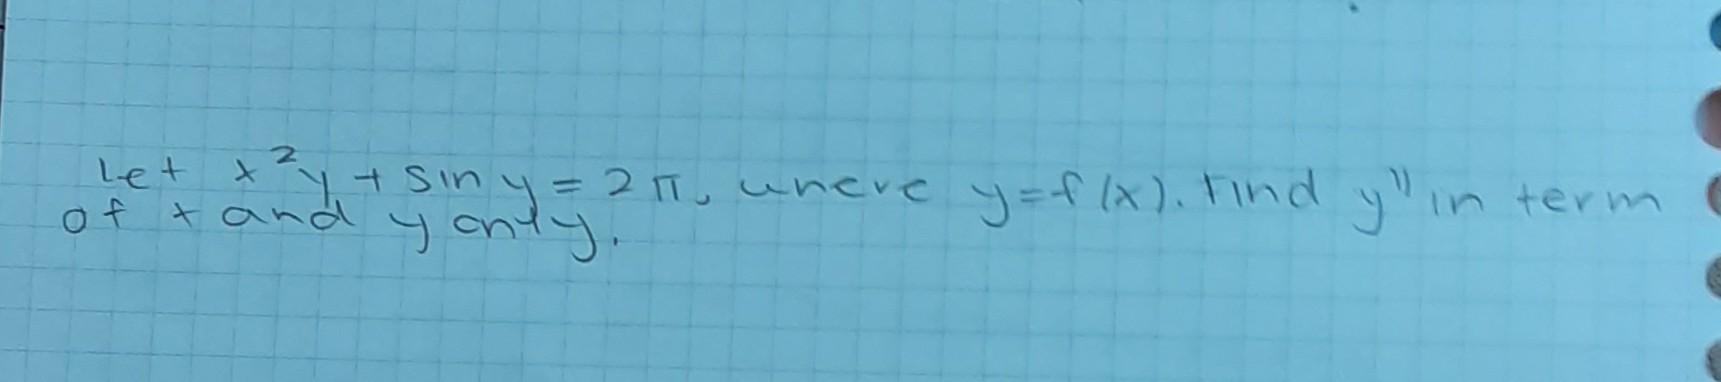 Let x²y + sin y = 2π, where y=f(x). Find y'' in term
of x and y only.